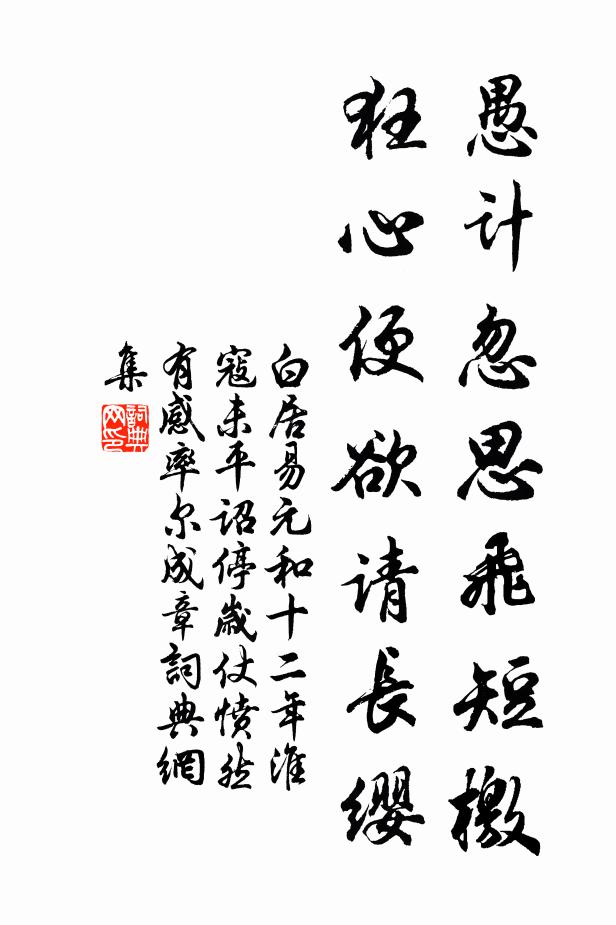 愚计忽思飛短檄
狂心便欲请長缨
白居易元和十二年淮
寇未平诏停歲仗憤然
有感率尔成章詞典網
集
詞典网印